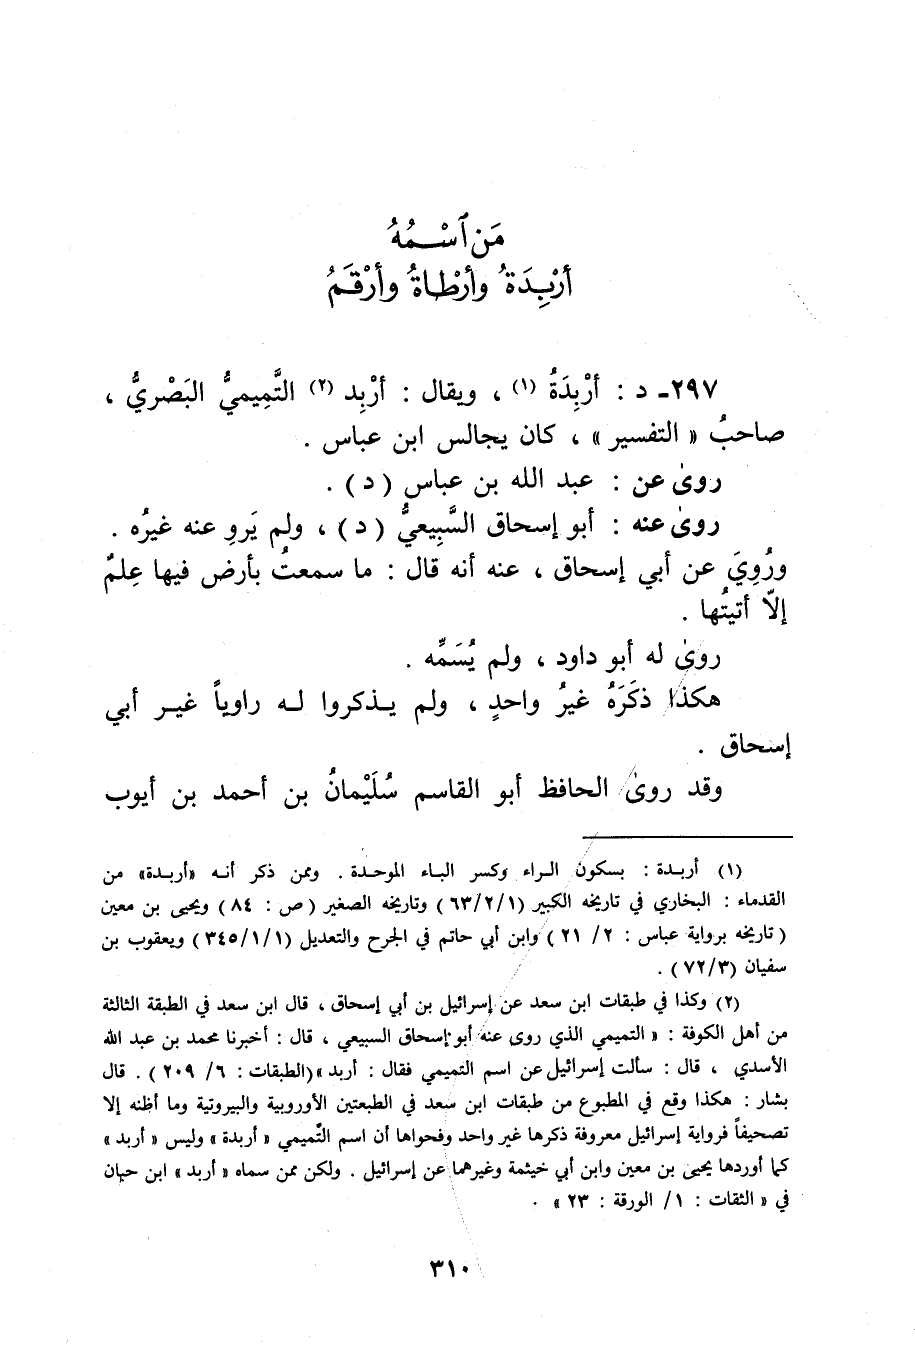 مَن ٱسْمُهُ
أرْبِدَةُ وأرْطاةُ وأرْقَمُ
٢٩٧ـ د : أرْبِدَةُ (١) ، ويقال : أرْبِد (٢) التَّمِيميُّ البَصْريُّ ،
صاحبُ « التفسير » ، كان يجالس ابن عباس .
روىٰ عن : عبد الله بن عباس ( د ) .
روىٰ عنه : أبو إسحاق السَّبِيعيُّ ( د ) ، ولم يَروِ عنه غيرُه .
ورُوِيَ عن أبي إسحاق ، عنه أنه قال : ما سمعتُ بأرض فيها عِلمٌ
إلاّ أتيتُها .
روىٰ له أبو داود ، ولم يُسَمِّه .
هكذا ذكَرَهُ غيرُ واحدٍ ، ولم يـذكروا لـه راوياً غيـر أبي
إسحاق .
وقد روىٰ الحافظ أبو القاسم سُلَيْمانُ بن أحمد بن أيوب
(١) أربـدة : بسكون الـراء وكسر البـاء الموحـدة . وممن ذكر أنـه «أربـدة» من
القدماء : البخاري في تاريخه الكبير (٦٣/٢/١) وتاريخه الصغير ( ص : ٨٤ ) ويحيى بن معين
( تاريخه برواية عباس : ٢/ ٢١ ) وابن أبي حاتم في الجرح والتعديل (٣٤٥/١/١ ) ويعقوب بن
سفيان (٧٢/٣ ) .
(٢) وكذا في طبقات ابن سعد عن إسرائيل بن أبي إسحاق ، قال ابن سعد في الطبقة الثالثة
من أهل الكوفة : « التميمي الذي روى عنه أبو إسحاق السبيعي ، قال : أخبرنا محمد بن عبد الله
الأسدي ، قال : سألت إسرائيل عن اسم التميمي فقال : أربد »(الطبقات : ٦/ ٢٠٩ ) . قال
بشار : هكذا وقع في المطبوع من طبقات ابن سعد في الطبعتين الأوروبية والبيروتية وما أظنه إلا
تصحيفاً فرواية إسرائيل معروفة ذكرها غير واحد وفحواها أن اسم التّميمي « أربدة » وليس « أربد »
كما أوردها يحيى بن معين وابن أبي خيثمة وغيرهما عن إسرائيل . ولكن ممن سماه « أربد » ابن حبان
في « الثقات : ١/ الورقة : ٢٣ » .
٣١٠